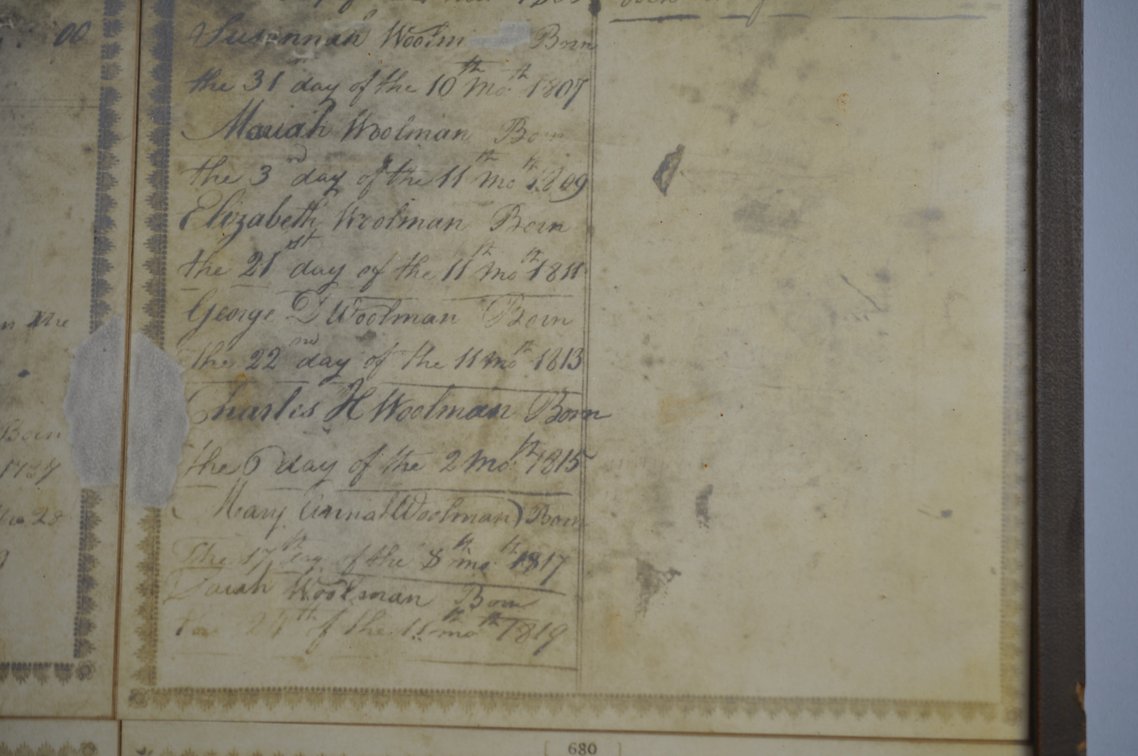 00
Susannah Woolm Born
the 31 day of the 10th Mo.th 1807
Mariah Woolman Born
the 3rd day of the 11th Mo th 1809
Elizabeth Woolman Born
the 21st day of the 11th Mo th 1811
George D Woolman Born
the 22nd day of the 11 Mo th 1813
Charles H Woolman Born
the 6 day of the 2 Mo. th 1815
Mary Annah Woolman Born
The 17th day of the 8th mo. th 1817
Sarah Woolman Born
of the 11th mo th 1819
Born
the 28
680